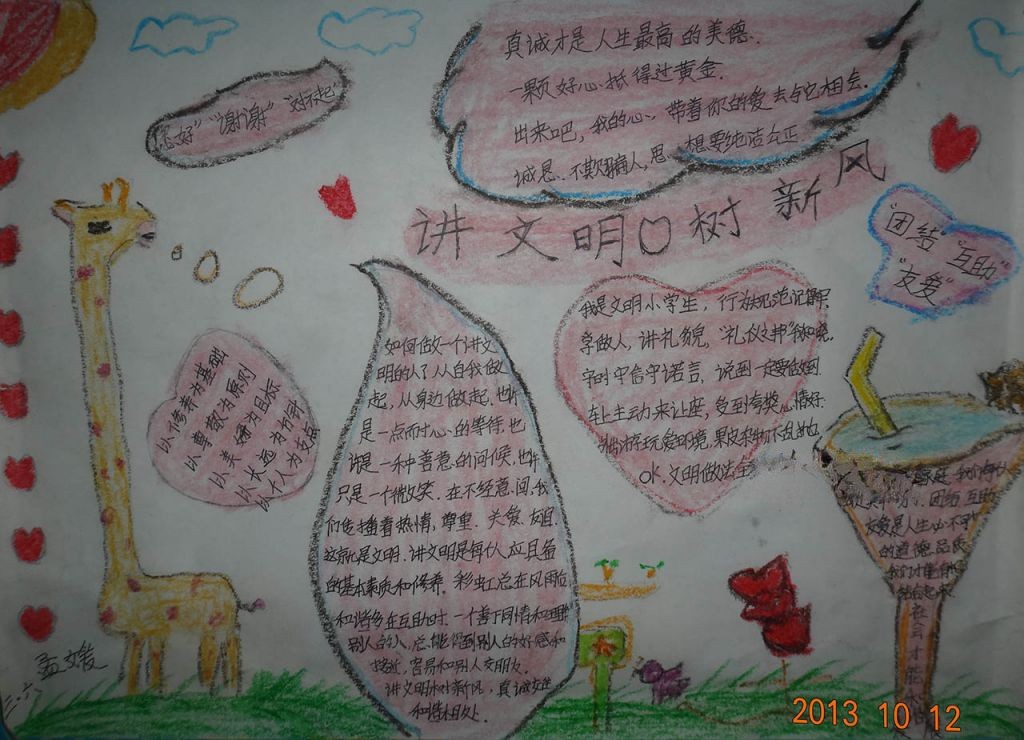 真诚才是人生最高的美德.
一颗好心抵得过黄金.
出来吧,我的心,带着你的爱去与它相会.
诚恳.不欺骗人,思想要纯洁公正
"您好""谢谢""对不起"
讲文明树新风
"团结""互助"
"友爱"
以修养为基础
以尊敬为原则
以美婚为目标
以长远为方针
以个人为支点
如何做一个讲文
明的人了从自我做
起,从身边做起.也许
是一点耐心的等待也
许是一种善意的问候,也许
只是一个微笑.在不经意间,我
们传播着热情,尊重.关爱.友谊.
这就是文明.讲文明是每个人应具备
的基本素质和修养.彩虹总在风雨后
和谐多在互助时.一个善于同情和理解
别人的人,总能得到别人的好感和
接近,容易和别人交朋友.
讲文明树新风,真诚友谊
和谐相处.
我是文明小学生,行为规范记得牢
学做人,讲礼貌,"礼仪之邦"我知晓.
守时守信守诺言,说到一定要做到
车上主动来让座,受到夸奖心情好.
游玩爱环境,果皮杂物不乱抛
ok.文明做法
家庭.我们
团结互助
友爱是人生必不可
的道德品质
我们才能
孟文媛
三.六
2013 10 12